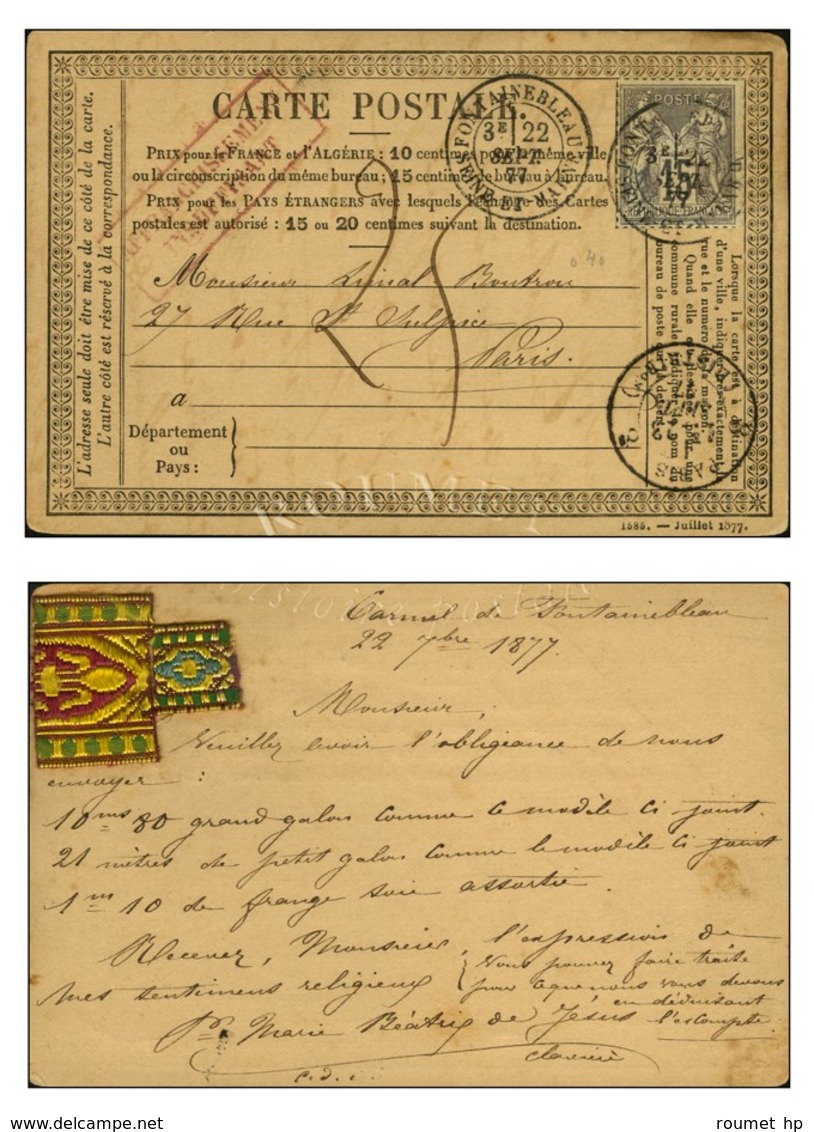 CARTE POSTALE.
PRIX pour la FRANCE et l'ALGÉRIE : 10 centimes pour la même ville
ou la circonscription du même bureau; 15 centimes de bureau à bureau.
PRIX pour les PAYS ÉTRANGERS avec lesquels l'échange des Cartes
postales est autorisé : 15 ou 20 centimes suivant la destination.
L'adresse seule doit être mise de ce côté de la carte.
L'autre côté est réservé à la correspondance.
AFFRANCHISSEMENT
INSUFFISANT
FONTAINEBLEAU
3E 22
SEPT
77
SEINE ET MARNE
POSTES
15
RÉPUBLIQUE FRANÇAISE
25
Monsieur Boutrou
27 Rue St Sulpice
Paris.
a
Département
ou
Pays :
Lorsque la carte est à destination
d'une ville, indiquer très-exactement la
rue et le numéro de la maison.
Quand elle est destinée pour une
commune rurale, indiquer le nom du
bureau de poste qui la dessert.
PARIS
1585. — Juillet 1877.
ROUMET
histoire postale
Carmel de Fontainebleau
22 7bre 1877.
Monsieur,
Veuillez avoir l'obligeance de nous
envoyer :
10ms 80 grand galon comme le modèle ci joint.
21 mètres de petit galon comme le modèle ci joint
1m 10 de frange soie assortie.
Recevez, Monsieur, l'expression de
mes sentimens religieux
Sr Marie Béatrix de Jésus
c.d.i.
Vous pouvez faire traite
pour ce que nous vous devons
en déduisant
l'escompte.
roumet hp